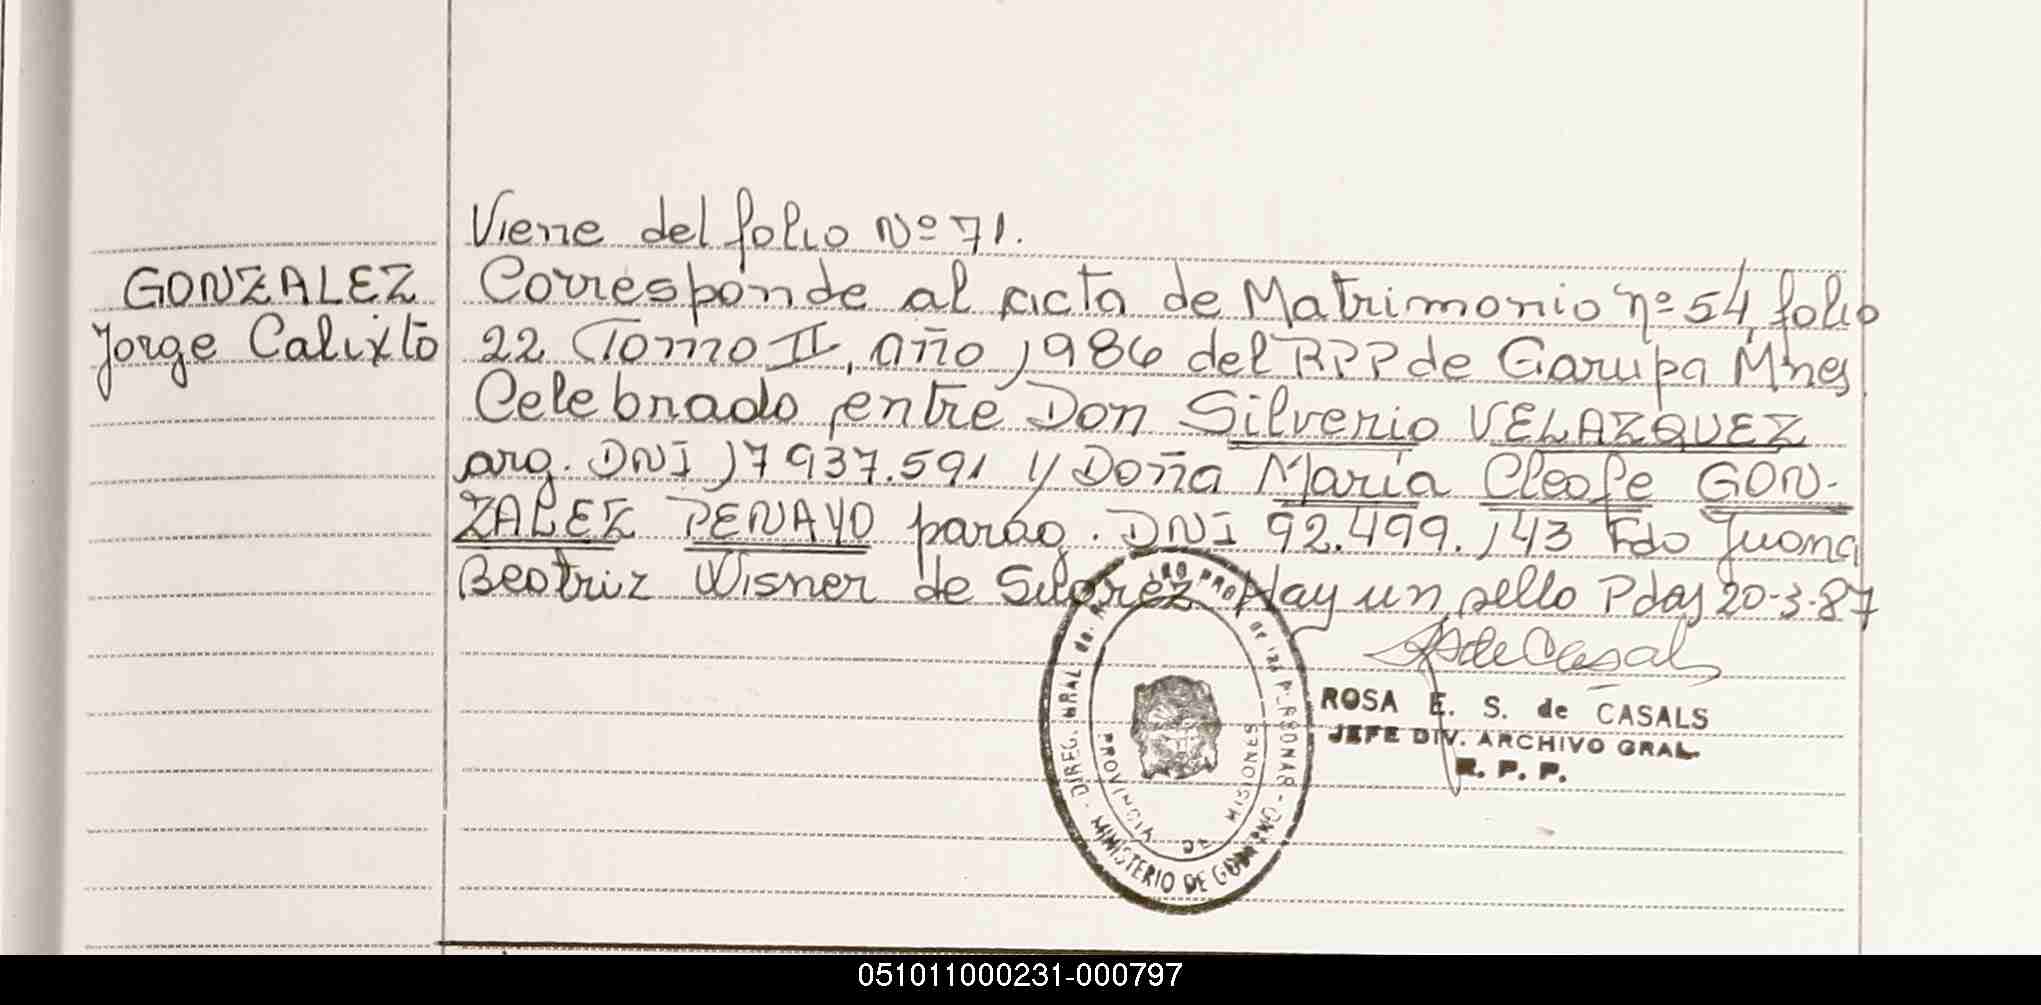 Viene del folio Nº 71.
GONZALEZ
Jorge Calixto
Corresponde al acta de Matrimonio nº 54, folio
22 Tomo II, año 1986 del RPP de Garupa Mnes
Celebrado entre Don Silverio VELAZQUEZ
arg. DNI 17937.591 y Doña Maria Cleofe GON-
ZALEZ PENAYO parag. DNI 92.499.143 Fdo Juana
Beatriz Wisner de Hay un sello Pdas 20-3-87
ROSA E. S. de CASALS
JEFE DIV. ARCHIVO GRAL.
R. P. P.
DIREC. GRAL de
MINISTERIO DE GOBIERNO
PROVINCIA DE MISIONES
051011000231-000797